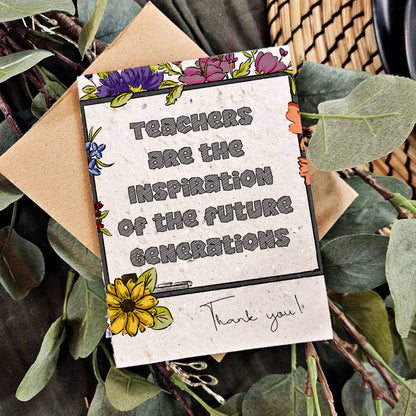 Teachers
are the
inspiration
of the future
generations
Thank you!